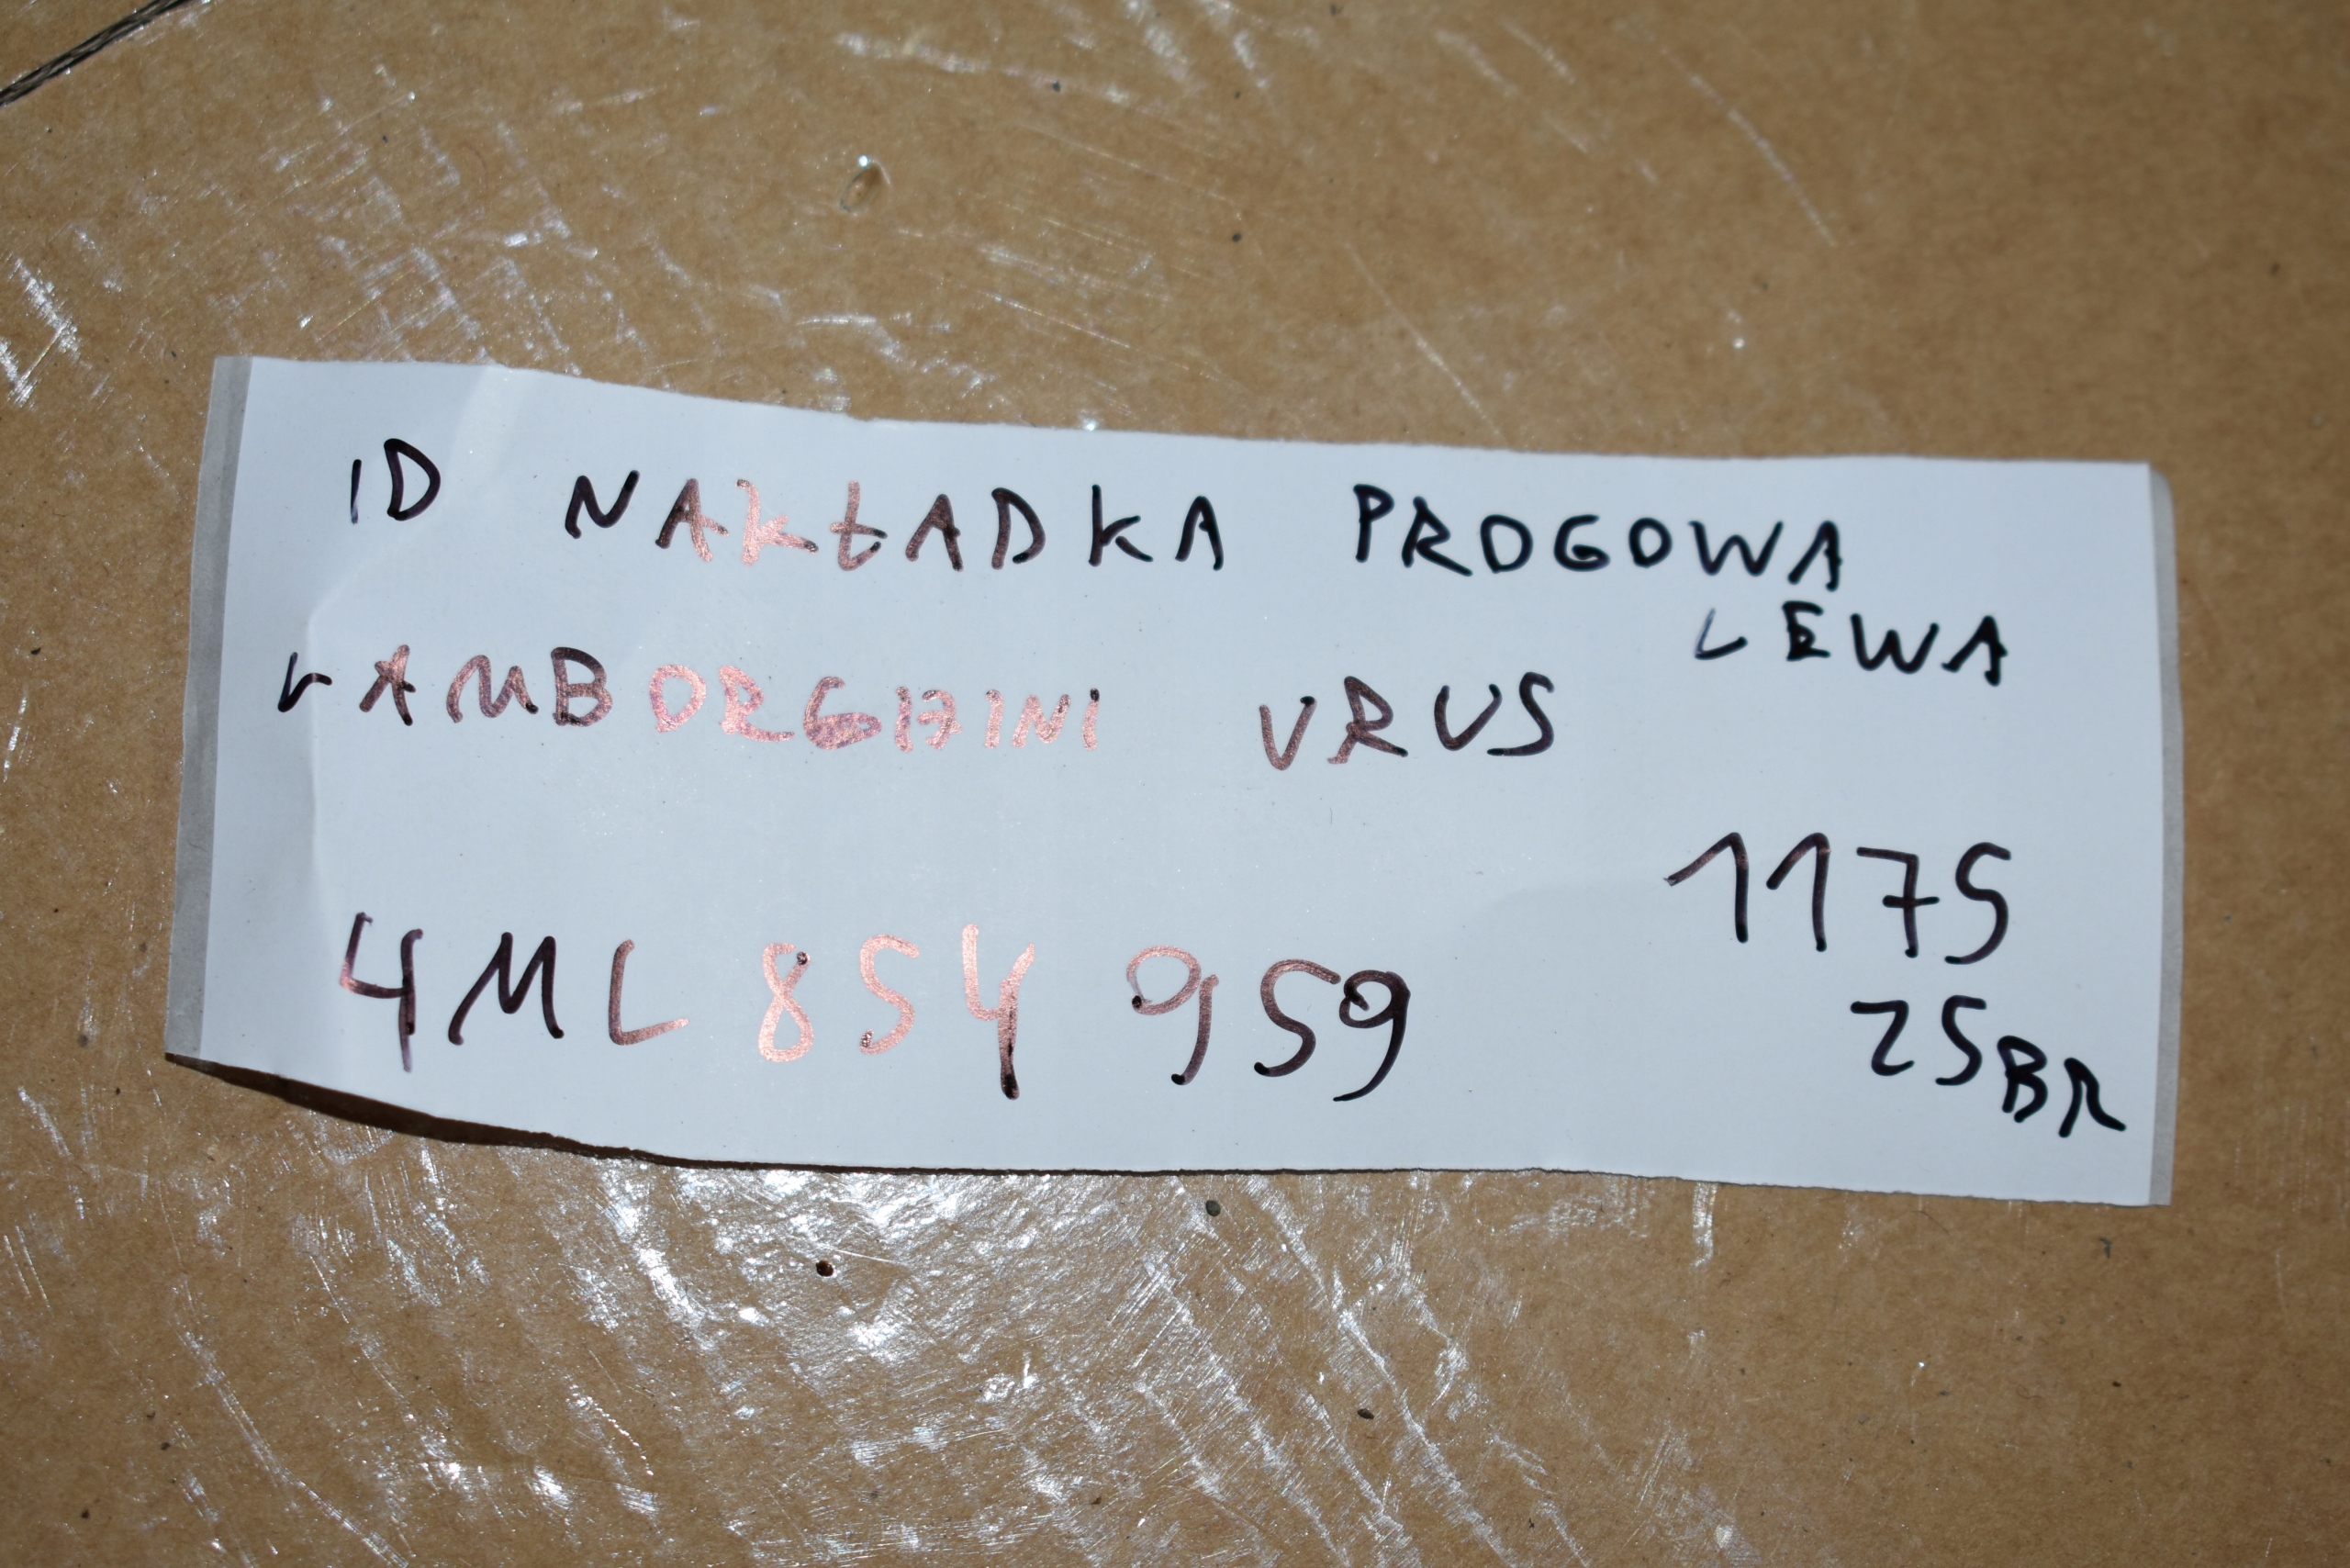 ID NAKŁADKA PROGOWA
LEWA
LAMBORGHINI URUS
1175
4ML 854 959
25BR